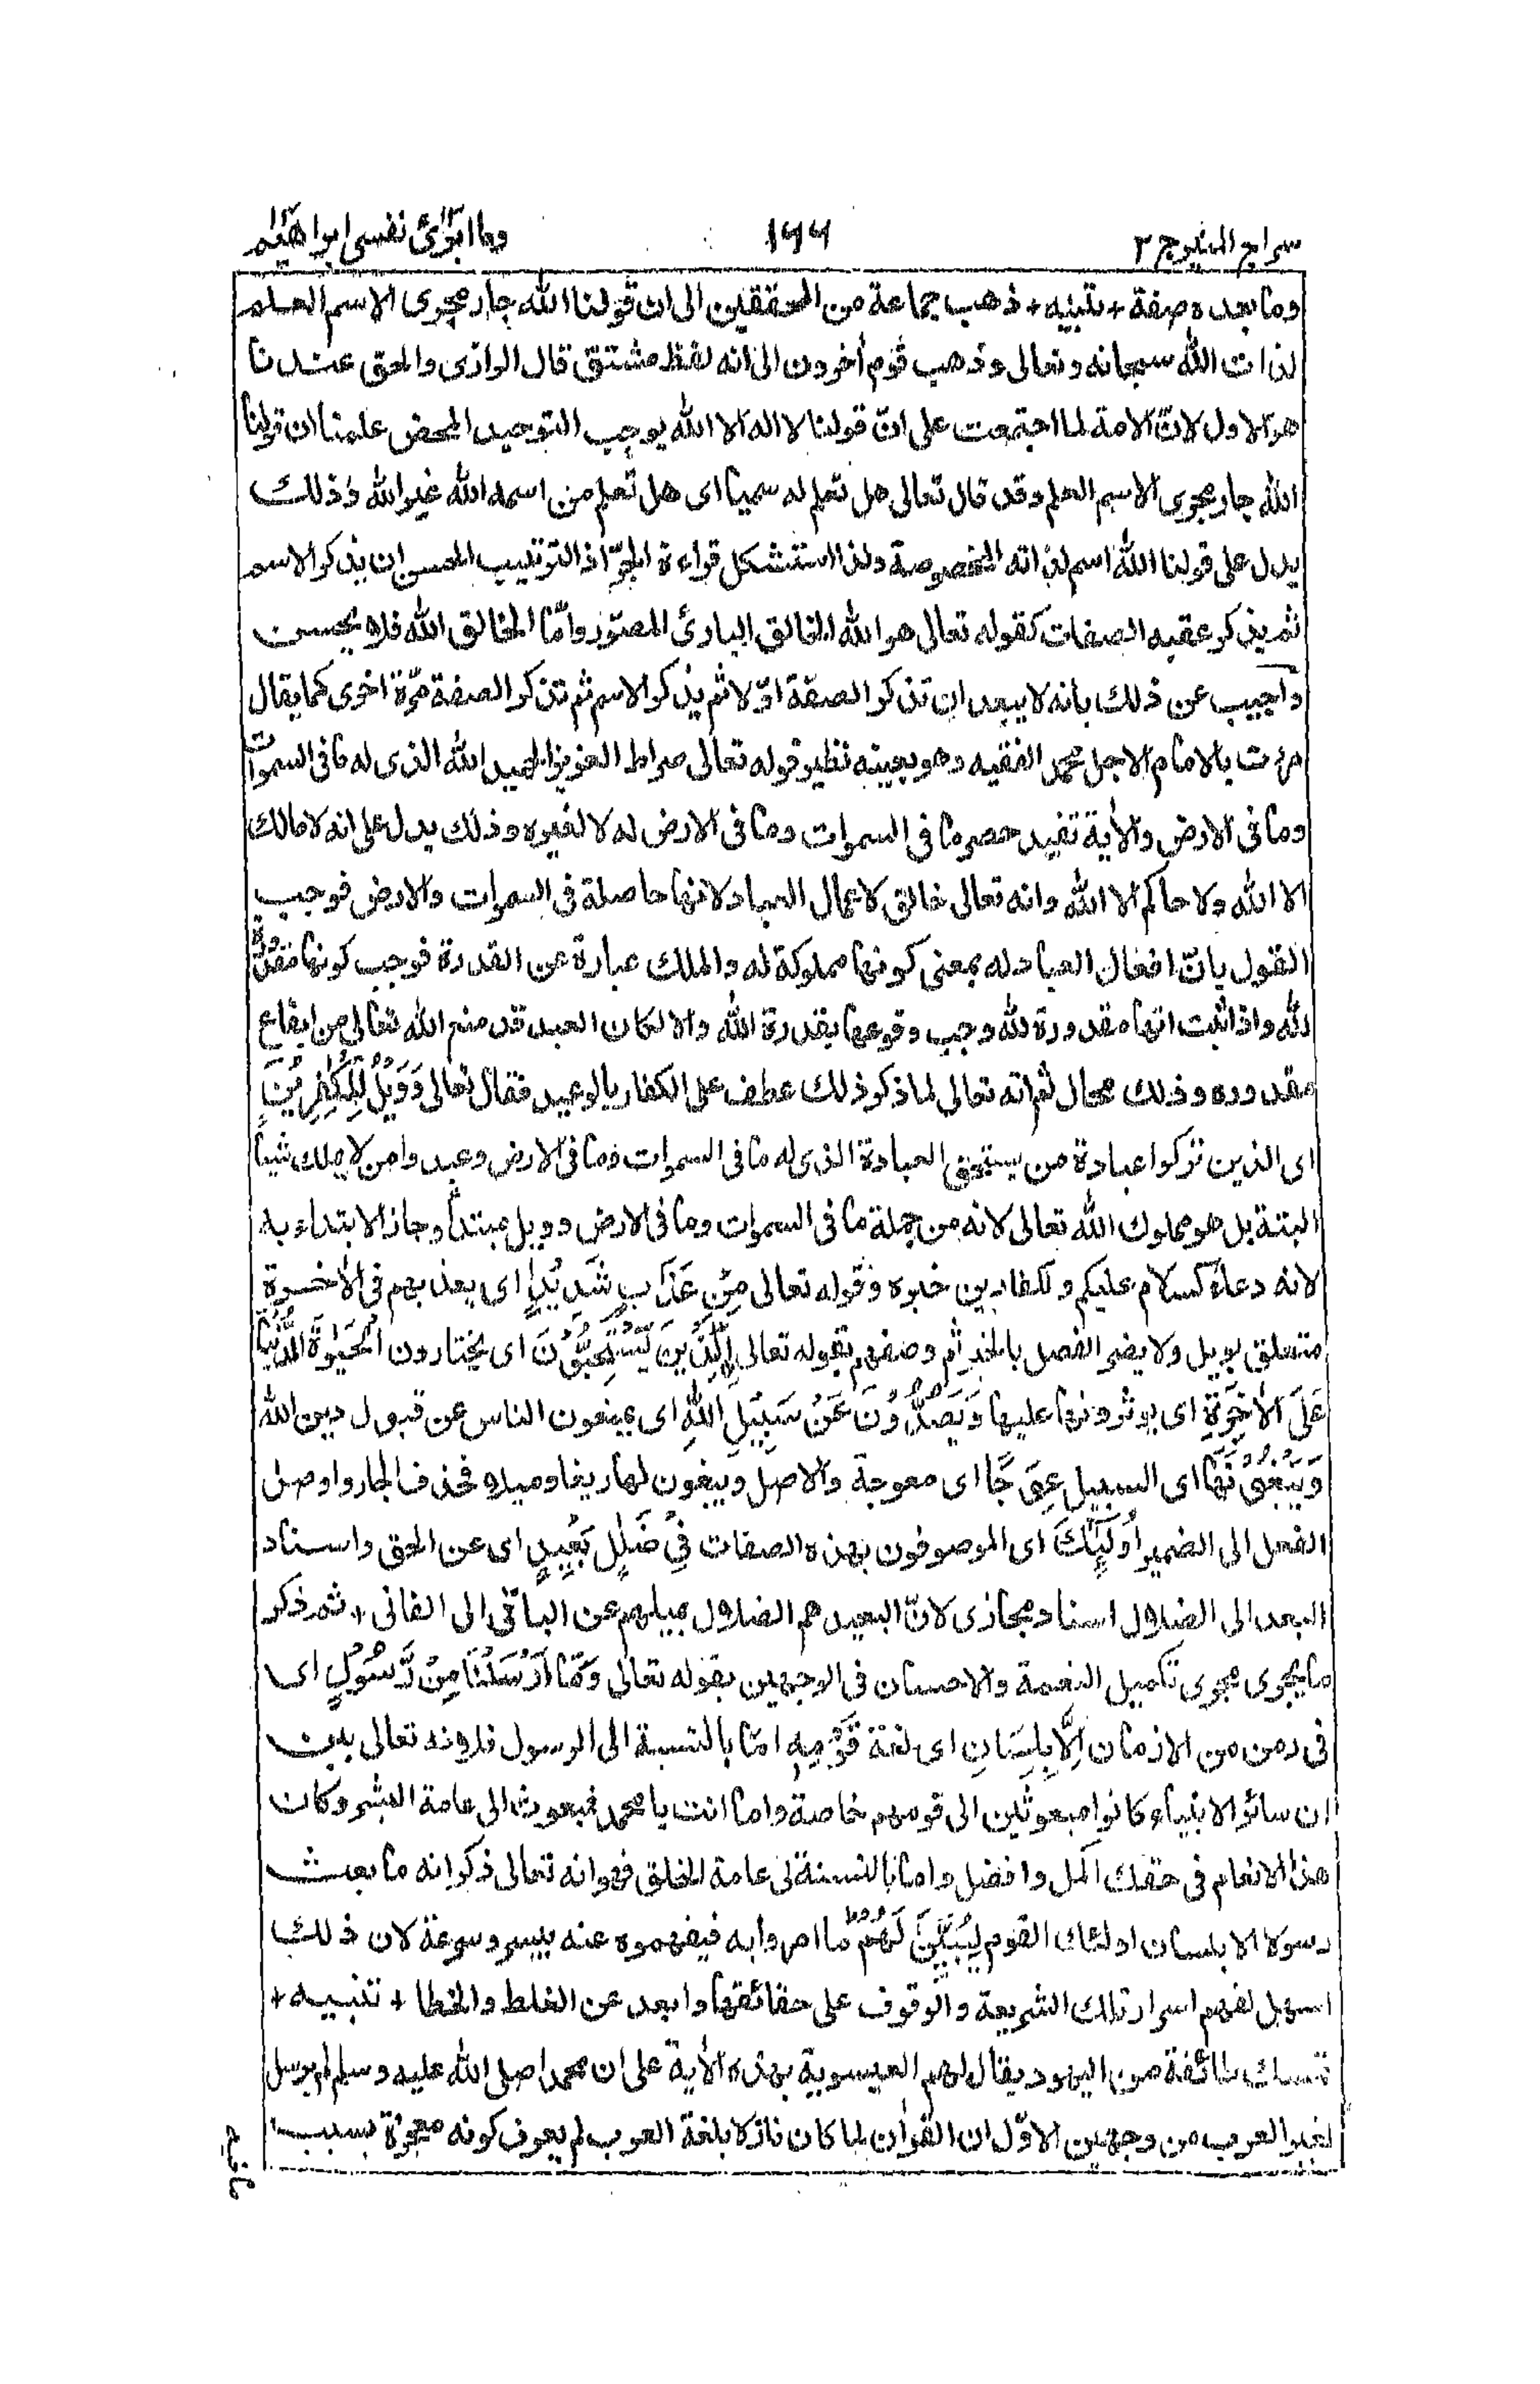 سراج المنير ج ٣
١٦٦
وما ابرئ نفسى ابراهيم
وما بعده صفة + تنبيه + ذهب جماعة من المحققين الى ان قولنا الله جار مجرى الاسم العلم
لذات الله سبحانه وتعالى وذهب قوم أخرون الى انه لفظ مشتق قال الرازى والحق عندنا
هو الاول لانّ الامة لما اجتمعت على انّ قولنا لا اله الا الله يوجب التوحيد المحض علمنا ان قولنا
الله جار مجرى الاسم العلم وقد قال تعالى هل تعلم له سميا اى هل تعلم من اسمه الله غير الله وذلك
يدل على قولنا الله اسم لذاته المخصوصة ولذا استشكل قراءة الجرّ اذ الترتيب الحسن ان يذكر الاسم
ثم يذكر عقبه الصفات كقوله تعالى هو الله الخالق البارئ المصوّر وامّا الخالق الله فلا يحسن
واجيب عن ذلك بانه لا يبعد ان تذكر الصفة اوّلا ثم يذكر الاسم ثم تذكر الصفة مرّة اخرى كما يقال
مررت بالامام الاجل محمد الفقيه وهو بعينه نظير قوله تعالى صراط العزيز الحميد الله الذى له ما فى السموات
وما فى الارض والأية تفيد حصر ما فى السموات وما فى الارض له لا لغيره وذلك يدل على انه لا مالك
الا الله ولا حاكم الا الله وانه تعالى خالق لاعمال العباد لانها حاصلة فى السموات والارض فوجب
القول بانّ افعال العباد له بمعنى كونها مملوكة له والملك عبارة عن القدرة فوجب كونها مقدورة
لله واذا ثبت انها مقدورة لله وجب وقوعها بقدرة الله والا لكان العبد قد منع الله تعالى من ايقاع
مقدوره وذلك محال ثم انه تعالى لما ذكر ذلك عطف على الكفار بالوعيد فقال تعالى وَوَيْلٌ لِّلْكٰفِرِيْنَ
اى الذين تركوا عبادة من يستحق العبادة الذى له ما فى السموات وما فى الارض وعبدوا من لا يملك شيأ
البتة بل هو مملوك الله تعالى لانه من جملة ما فى السموات وما فى الارض وويل مبتدأ وجاز الابتداء به
لانه دعاء كسلام عليكم وللكافرين خبره وقوله تعالى مِنْ عَذَابٍ شَدِيْدٍ اى يعذبهم فى الأخرة
متعلق بويل ولا يضر الفصل بالخبر ثم وصفهم بقوله تعالى اِلَّذِيْنَ يَسْتَحِبُّوْنَ اى يختارون الْحَيٰوةَ الدُّنْيَا
عَلَى الْاٰخِرَةِ اى يوثرونها عليها وَيَصُدُّوْنَ عَنْ سَبِيْلِ اللّٰهِ اى يمنعون الناس عن قبول دين الله
وَيَبْغُوْنَهَا اى السبيل عِوَجًا اى معوجة والاصل ويبغون لها ريغا وميلا فحذف الجار واوصل
الفعل الى الضمير اُولٰٓئِكَ اى الموصوفون بهذه الصفات فِيْ ضَلٰلٍ بَعِيْدٍ اى عن الحق واسناد
البعد الى الضلال اسناد مجازى لانّ البعيد هم الضلال بميلهم عن الباقى الى الفانى + ثم ذكر
ما يجرى مجرى تكميل النعمة والاحسان فى الوجهين بقوله تعالى وَمَا اَرْسَلْنَا مِنْ رَّسُوْلٍ اى
فى زمن من الازمان اِلَّا بِلِسَانِ اى لغة قَوْمِهٖ امّا بالنسبة الى الرسول فلانه تعالى بين
ان سائر الانبياء كانوا مبعوثين الى قومهم خاصة واما انت يا محمد فبعوث الى عامة البشر وكان
هذا الانعام فى حقك اكمل وافضل واما بالنسبة لى عامة الخلق فهو انه تعالى ذكر انه ما بعث
رسولا الا بلسان اولئك القوم لِيُبَيِّنَ لَهُمْ ما امروا به فيفهموه عنه بيسر وسرعة لان ذلك
اسهل لفهم اسرار تلك الشريعة والوقوف على حقائقها وابعد عن الغلط والخطا + تنبيه +
تمسك طائفة من اليهود يقال لهم العيسوية بهذه الأية على ان محمدا صلى الله عليه وسلم لم يرسل
لغير العرب من وجهين الاوّل ان القرأن لما كان نازلا بلغة العرب لم يعرف كونه معجزة بسبب